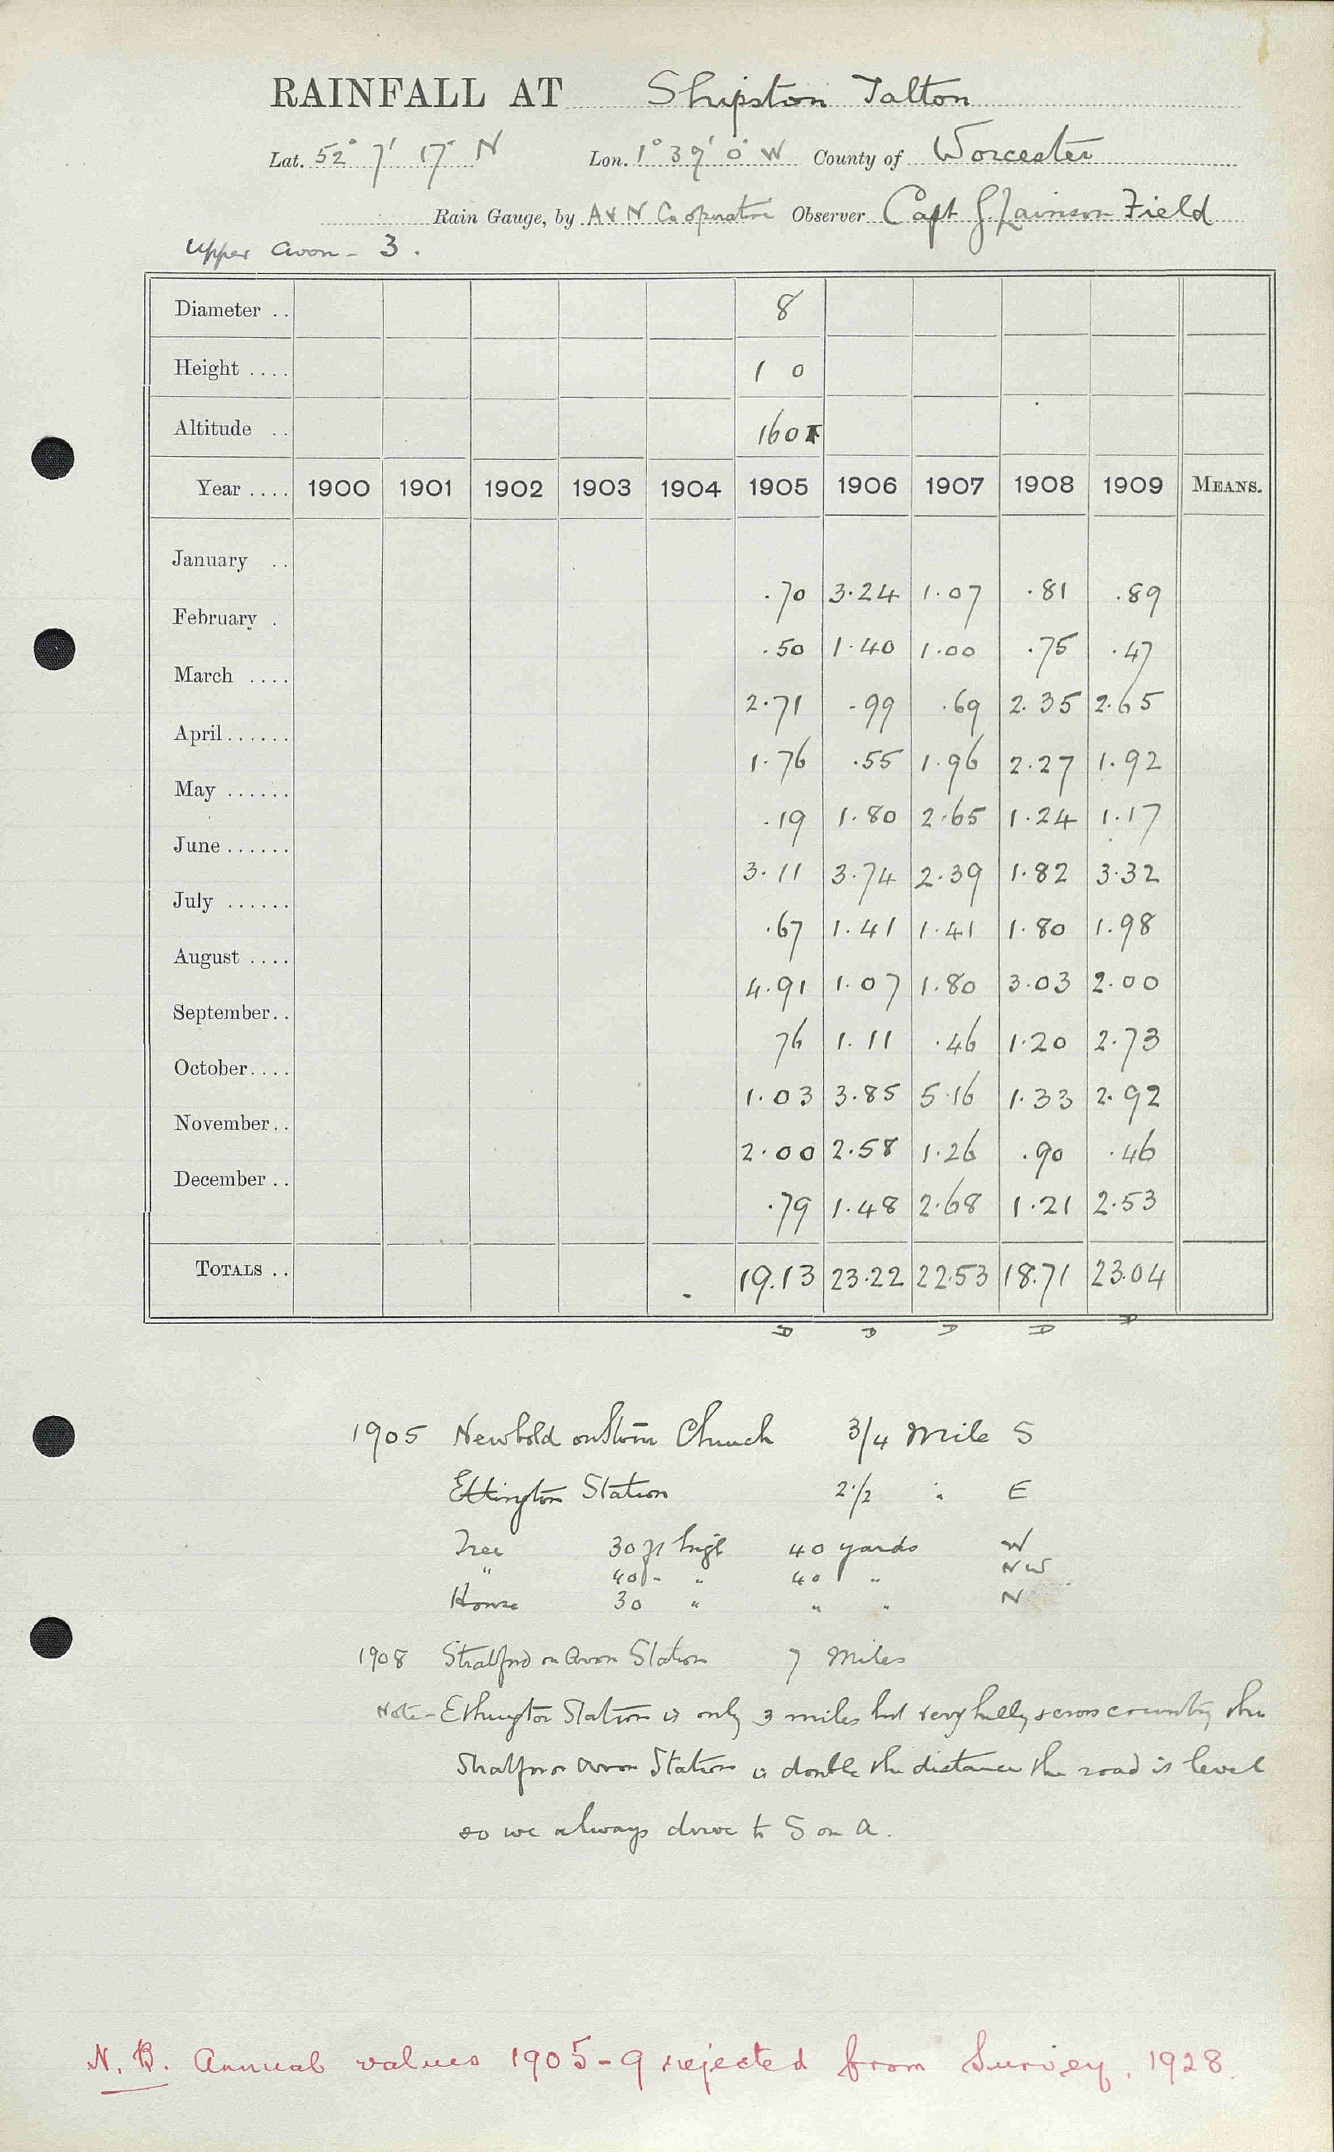 RAINFALL AT Shipston Talton
Lat. 52° 7' 17" N Lon. 1° 39' 0" W County of Worcester
Rain Gauge, by A & N Cooperative Observer Capt G. Lainson Field
Upper Avon - 3.
Diameter .. 8
Height .... 1 0
Altitude .. 160
Year .... 1900 1901 1902 1903 1904 1905 1906 1907 1908 1909 MEANS.
January .. .70 3.24 1.07 .81 .89
February . .50 1.40 1.00 .75 .47
March .... 2.71 .99 .69 2.35 2.65
April...... 1.76 .55 1.96 2.27 1.92
May ...... .19 1.80 2.65 1.24 1.17
June...... 3.11 3.74 2.39 1.82 3.32
July ...... .67 1.41 1.41 1.80 1.98
August .... 4.91 1.07 1.80 3.03 2.00
September.. 76 1.11 .46 1.20 2.73
October.... 1.03 3.85 5.16 1.33 2.92
November.. 2.00 2.58 1.26 .90 .46
December .. .79 1.48 2.68 1.21 2.53
TOTALS .. 19.13 23.22 22.53 18.71 23.04
1905 Newbold on Stour Church 3/4 Mile S
Ettington Station 2 1/2 " E
Tree 30 ft high 40 yards W
" 40 - " 40 " NW
House 30 " " " N
1908 Stratford on Avon Station 7 Miles
Note - Ethington Station is only 3 miles but very hilly across country tho
Stratford on Avon Station is double the distance the road is level
so we always drive to S on A.
N.B. Annual values 1905-9 rejected from Survey, 1928.